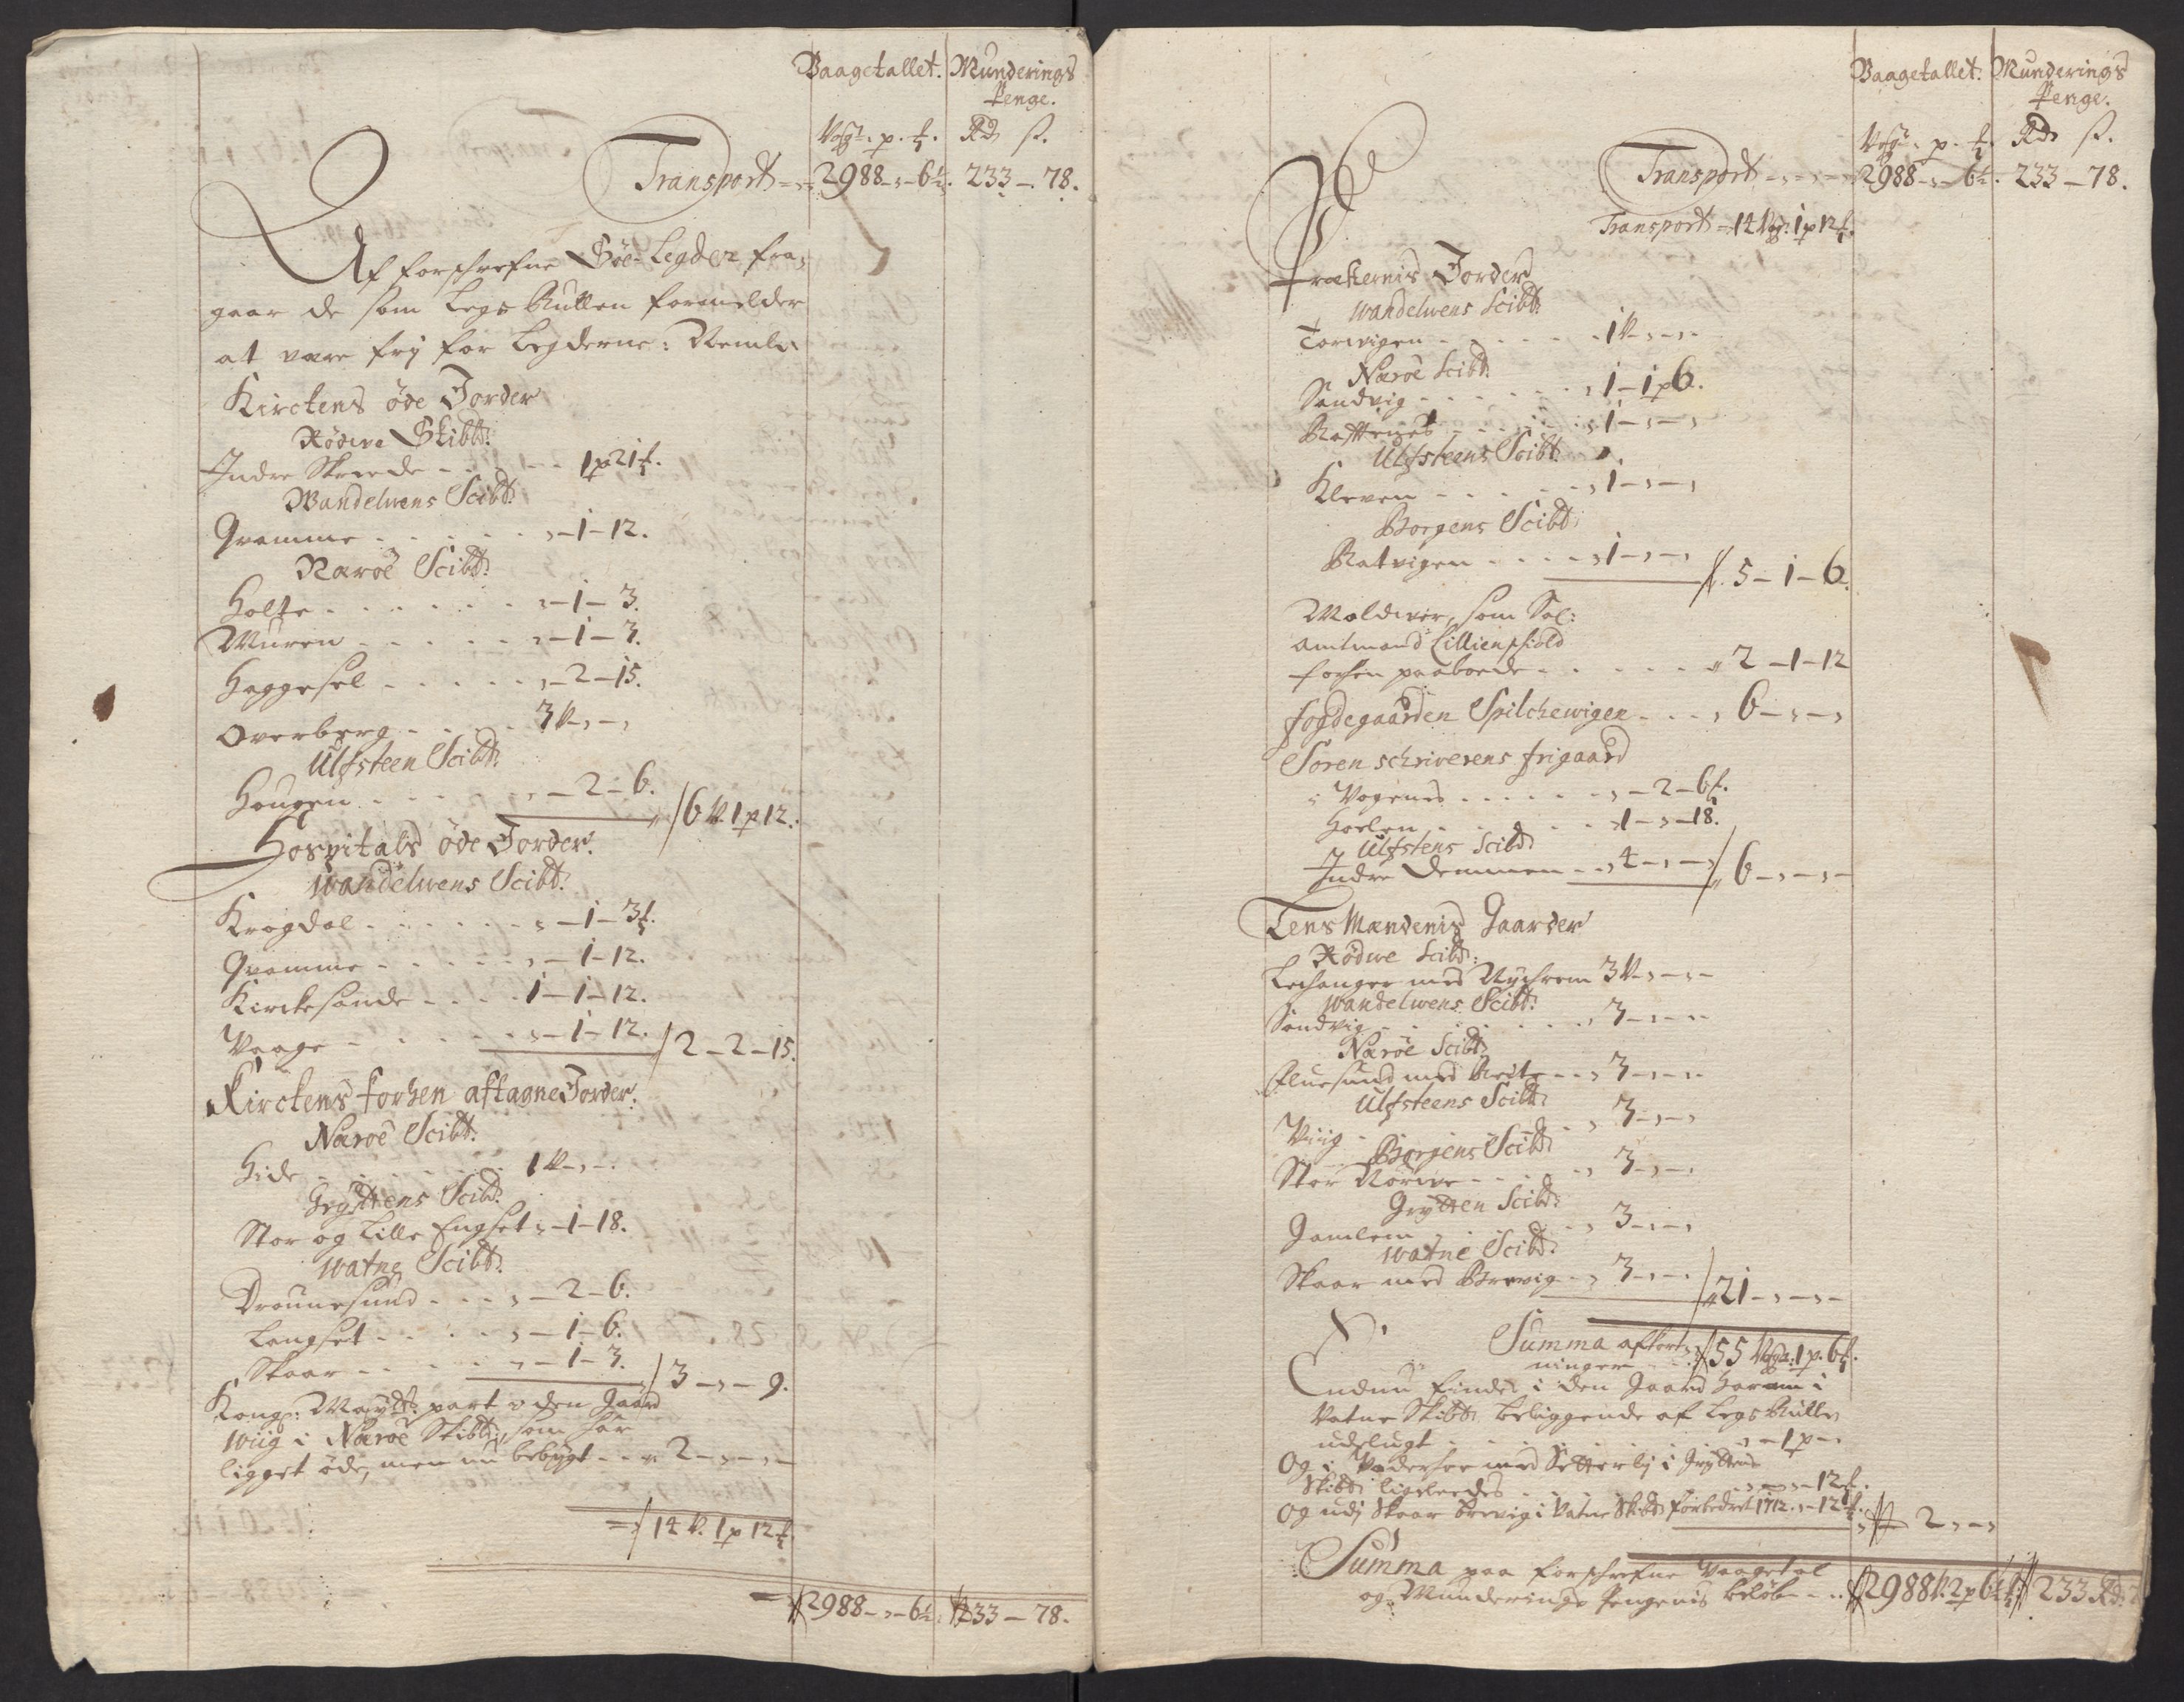 Vaagetallet. Munderings
Penge.
Vog: p. ℔. Rd ß.
Transport - 2988 - „ - 6½. 233 - 78.
Af forschrefne Söe-Legder fra,
gaar de som Legs Rullen formelder
at være frij for Legderne: Nemlig
Kirckens öde Jorder
Rödwe Skibb:
Indre Skreede - - - 1 p 21 ℔.
Wandelwens Scibd:
Gramme - - - „ - 1 - 12.
Naröe Scibd:
Holte - - - „ - 1 - 3.
Muren - - - „ - 1 - 3.
Haggesel - - - „ - 2 - 15.
Overberg - - - 3 V - „ - „
Ulfsteen Scibd:
Hougen - - - „ - 2 - 6. / 6 V. 1 p 12.
Hospitals öde Jorder.
Wandelwens Scibd:
Krogdal - - - „ - 1 - 3 ℔.
Gramme - - - „ - 1 - 12.
Kirckesande - - - 1 - 1 - 12.
Vaage - - - „ - 1 - 12. / 2 - 2 - 15.
Kirckens forhen aftagne Jorder.
Naröe Scibd:
Hide - - - 1 V - „ - „
Gryttens Scibd:
Stor og Lille Engset „ - 1 - 18.
Watne Scibd:
Drounesund - - - „ - 2 - 6.
Langset - - - „ - 1 - 6.
Skaar - - - „ - 1 - 3. / 3 - „ - 9.
Kong: Maytt: part i den Gaard
Wiig i Naröe Skibbd:, som har
ligget öde, men nu bebygt - - „ 2 - „ - „
/ 14 V. 1 p 12 ℔.
2988 - „ - 6½. 233 - 78.
Vaagetallet. Munderings
Penge.
Vog: p. ℔. Rd ß.
Transport - „ - 2988 - „ - 6½. 233 - 78.
Transport - 14 Vog: 1 p 12 ℔.
Præsternis Jorder
Wandelwens Scibd:
Torwigen - - - 1 V - „ - „
Naröe Scibd:
Sandvig - - - „ 1 - 1 p 6.
- - - „ 1 - „ - „
Ulfsteens Scibd:
Kleven - - - „ 1 - „ - „
Borgens Scibd:
Ratvigen - - - „ 1 - „ - „ /. 5 - 1 - 6.
Moldwer, som Sal:
Amtmand Lillienschiold
forhen paaboede - - - „ 2 - 1 - 12
fogdegaarden Spilckewigen - - - „ 6 - „ - „
Soren schriverens frigaard
i Vogenes - - - „ - 2 - 6 ℔.
Hoelen - - - „ 1 - „ - 18.
Ulfstens Scibd:
Indre Demmen - - „ 4 - „ - „ / 6 - „ - „ -
LensMandenis Gaarder
Rödwe Scibd:
Lechanger med Nychrem 3 V - „ - „ -
Wandelwens Scibd:
Sandvig - - - „ 3 - „ - „
Naröe Scibd:
Elnesund med Reite - - „ 3 - „ - „
Ulfsteens Scibd:
Viig - - - „ 3 - „ - „
Borgens Scibd:
Stor Nörwe - - - „ 3 - „ - „
Grytten Scibd:
Gamlem - - - „ 3 - „ - „
Watne Scibd:
Skaar med Brevig - „ 3 - „ - „ / 21 - „ - „ -
Summa afkort-
ninger - - / 55 Voger: 1 p. 6 ℔.
Endnu findes i den Gaard Haram i
Vatne Skibbd beliggende af Legs Rullen
udelugt - - - „ - 1 p - „
Og i med Setterlij i Gryttens
Skibbd ligeleedes - - - „ - „ - 12 ℔.
Og udj Skaar Brevig i Vatne Skibbd forbedret 1712. „ - 12 ℔. „ 2 „ - „
Summa paa forschrefne Vaagetal
og Munderings Pengenis belöb - - 2988 V. 2 p 6½ ℔ 233 Rd: